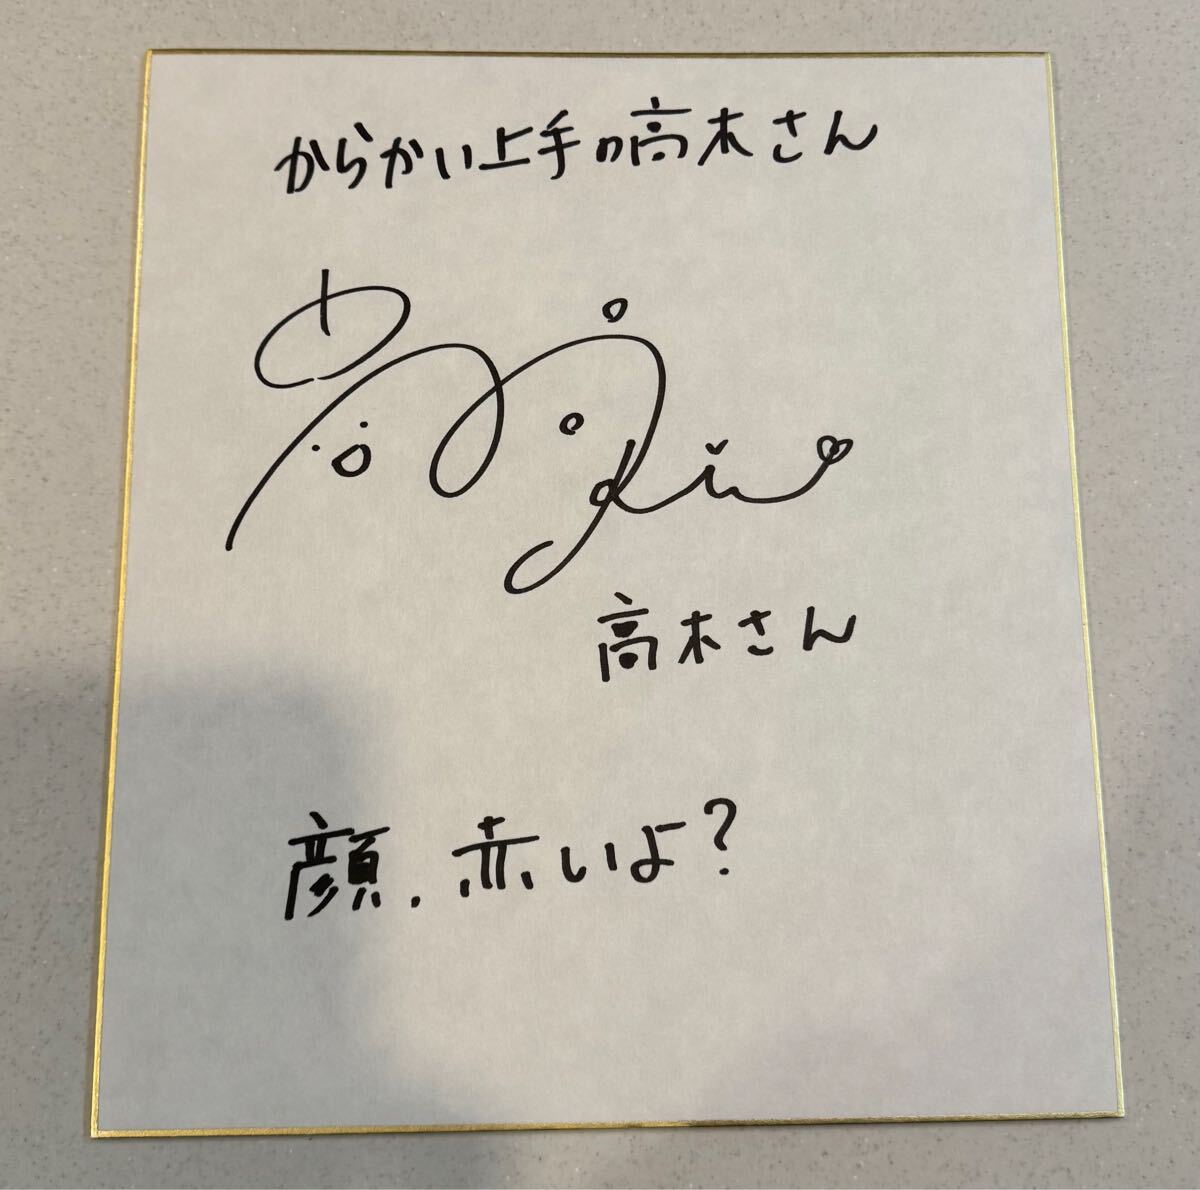 からかい上手の高木さん
高木さん
顔、赤いよ?